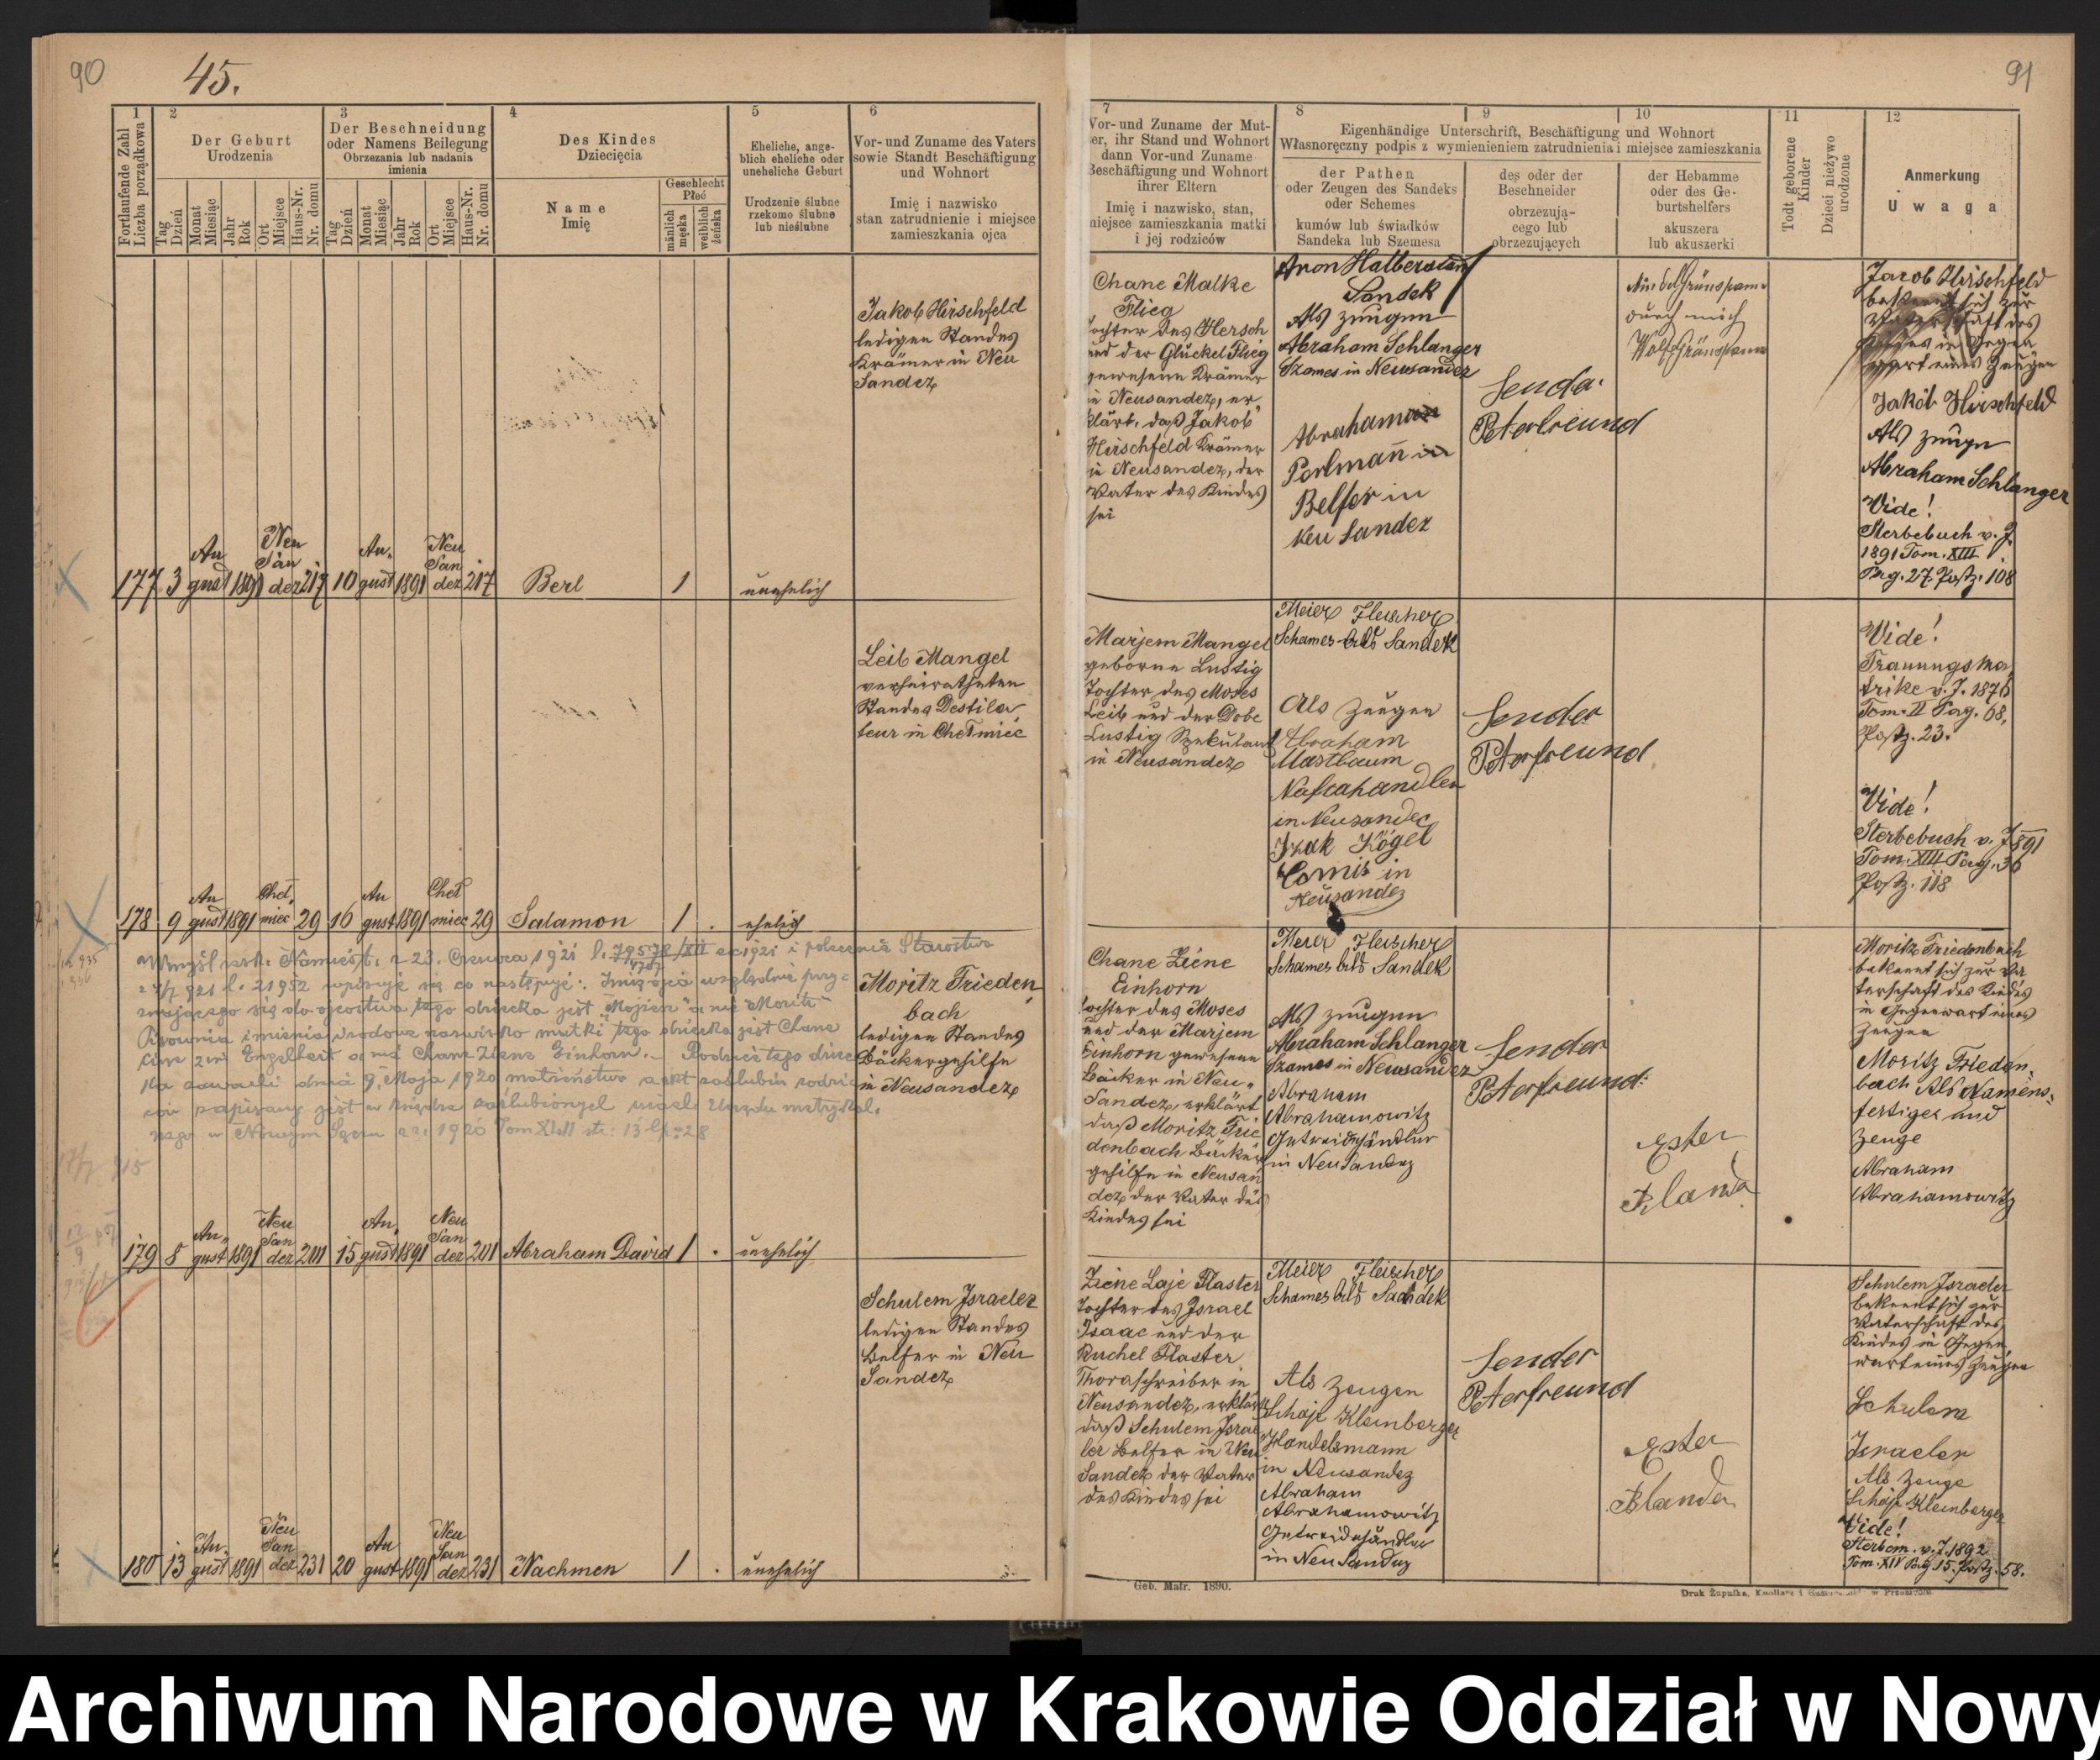 90
45.
91
1
2
3
4
5
6
7
8
9
10
11
12
Fortlaufende Zahl
Liczba porządkowa
Der Geburt
Urodzenia
Tag
Dzień
Monat
Miesiąc
Jahr
Rok
Ort
Miejsce
Haus-Nr.
Nr. domu
Der Beschneidung
oder Namens Beilegung
Obrzezania lub nadania
imienia
Tag
Dzień
Monat
Miesiąc
Jahr
Rok
Ort
Miejsce
Haus-Nr.
Nr. domu
Des Kindes
Dziecięcia
Name
Imię
Geschlecht
Płeć
mänlich
męska
weiblich
żeńska
Eheliche, ange-
blich eheliche oder
uneheliche Geburt
Urodzenie ślubne
rzekomo ślubne
lub nieślubne
Vor- und Zuname des Vaters
sowie Standt Beschäftigung
und Wohnort
Imię i nazwisko
stan zatrudnienie i miejsce
zamieszkania ojca
Vor- und Zuname der Mut-
ter, ihr Stand und Wohnort
dann Vor-und Zuname
Beschäftigung und Wohnort
ihrer Eltern
Imię i nazwisko, stan,
miejsce zamieszkania matki
i jej rodziców
Eigenhändige Unterschrift, Beschäftigung und Wohnort
Własnoręczny podpis z wymienieniem zatrudnienia i miejsce zamieszkania
der Pathen
oder Zeugen des Sandeks
oder Schemes
kumów lub świadków
Sandeka lub Szemesa
des oder der
Beschneider
obrzezują-
cego lub
obrzezujących
der Hebamme
oder des Ge-
burtshelfers
akuszera
lub akuszerki
Todt geborene
Kinder
Dzieci nieżywo
urodzone
Anmerkung
Uwaga
177 3 August 1891 Neu Sandez 217 10 August 1891 Neu Sandez 217 Berl 1 unehelich
Jakob Hirschfeld
ledigen Standes
Krämer in Neu
Sandez
Chane Malke
Flieg
Tochter des Hersch
und der Glückel Flieg
gewesene Krämer
in Neusandez, er
klärt, daß Jakob
Hirschfeld Krämer
in Neusandez, der
Vater des Kindes
sei
Aron Halberstam
Sandek
Als Zeugen
Abraham Schlanger
Szames in Neusandez
Perlman in
Belfer in
Neu Sandez
Sender
Peterfreund
durch mich
Wolf Grünspann
Jacob Hirschfeld
bekennt sich zur
Vaterschaft des
Kindes in Gegen
wart eines Zeugen
Jakob Hirschfeld
Als Zeuge
Abraham Schlanger
Vide!
Sterbebuch v. J.
1891 Tom. XIII
Pag. 27. Postz. 108
178 9 August 1891 Chełmiec 29 16 August 1891 Chełmiec 29 Salamon 1 . ehelich
Leib Mangel
verheiratheten
Standes Destila
teur in Chełmiec
Marjem Mangel
geborene Lustig
Tochter des Moses
Leib und der Dobe
Lustig Spekulant
in Neusandez
Meier Fleischer
Schames bild Sandek
Als Zeugen
Abraham
Mastbaum
Naftahandler
in Neusandec
Izak Kögel
Comis in
Neusandez
Sender
Peterfreund
Vide!
Trauungsma
trike v. J. 1876
Tom. II Pag. 68,
Postz. 23.
Vide!
Sterbebuch v. J. 1891
Tom. XIII Pag. 36
Postz. 118
W myśl resk. Namiest. z 23. Czerwca 1921 l. 79578/XII ex 1921 i polecenia Starostwa
921 l. 21952 wpisuje się co następuje: Imię ojca względnie przy-
znającego się do ojcostwa tego dziecka jest "Mojżesz" a nie "Moritz"
Pisownia imienia i rodowe nazwisko matki tego dziecka jest Chane
Engelhart a nie Chane Ziene Einhorn. - Rodzice tego dziec
ka zawarli dnia 9. Maja 1920 małżeństwo a akt zaślubin rodzi
ców zapisany jest w księdze zaślubionych Urzędu metrykal.
nego w Nowym Sączu z r. 1920 Tom XLII str. 13 lp. 28
179 8 August 1891 Neu Sandez 201 15 August 1891 Neu Sandez 201 Abraham David 1 . unehelich
Moritz Frieden
bach
ledigen Standes
Bäckergehilfe
in Neusandez
Chane Ziene
Einhorn
Tochter des Moses
und der Marjem
Einhorn gewesene
Bäcker in Neu-
Sandez, erklärt
daß Moritz Frie
denbach Bäcker
gehilfe in Neusan
dez der Vater des
Kindes sei
Meier Fleischer
Schames bild Sandek
Als Zeugen
Abraham Schlanger
Szames in Neusandez
Abraham
Abrahamowitz
Getreidehändler
in Neu Sandez
Sender
Peterfreund
Ester
Blanda
Moritz Friedenbach
bekennt sich zur Va
terschaft des Kindes
in Gegenwart eines
Zeugen
Moritz Frieden,
bach Als Namens,
fertiger und
Zeuge
Abraham
Abrahamowitz
180 13 August 1891 Neu Sandez 231 20 August 1891 Neu Sandez 231 Nachmen 1 . unehelich
Schulem Israeler
ledigen Standes
Belfer in Neu
Sandez
Ziene Laje Flaster
Tochter des Israel
Isaac und der
Ruchel Flaster
Thoraschreiber in
Neusandez, erklärt
daß Schulem Israe
ler Belfer in Neu
Sandez der Vater
des Kindes sei
Meier Fleischer
Schames bild Sandek
Als Zeugen
Schaje Kleinberger
Handelsmann
in Neusandez
Abraham
Abrahamowitz
Getreidehändler
in Neu Sandez
Sender
Peterfreund
Ester
Blanda
Schulem Israeler
bekennt sich zur
Vaterschaft des
Kindes in Gegen,
wart eines Zeugen
Schulem
Israeler
Als Zeuge
Schaje Kleinberger
Vide!
Sterbem. v. J. 1892
Tom. XIV Pag. 15. Postz. 58.
Geb. Matr. 1890.
Druk Żupnika, w Przemyślu.
Archiwum Narodowe w Krakowie Oddział w Nowy